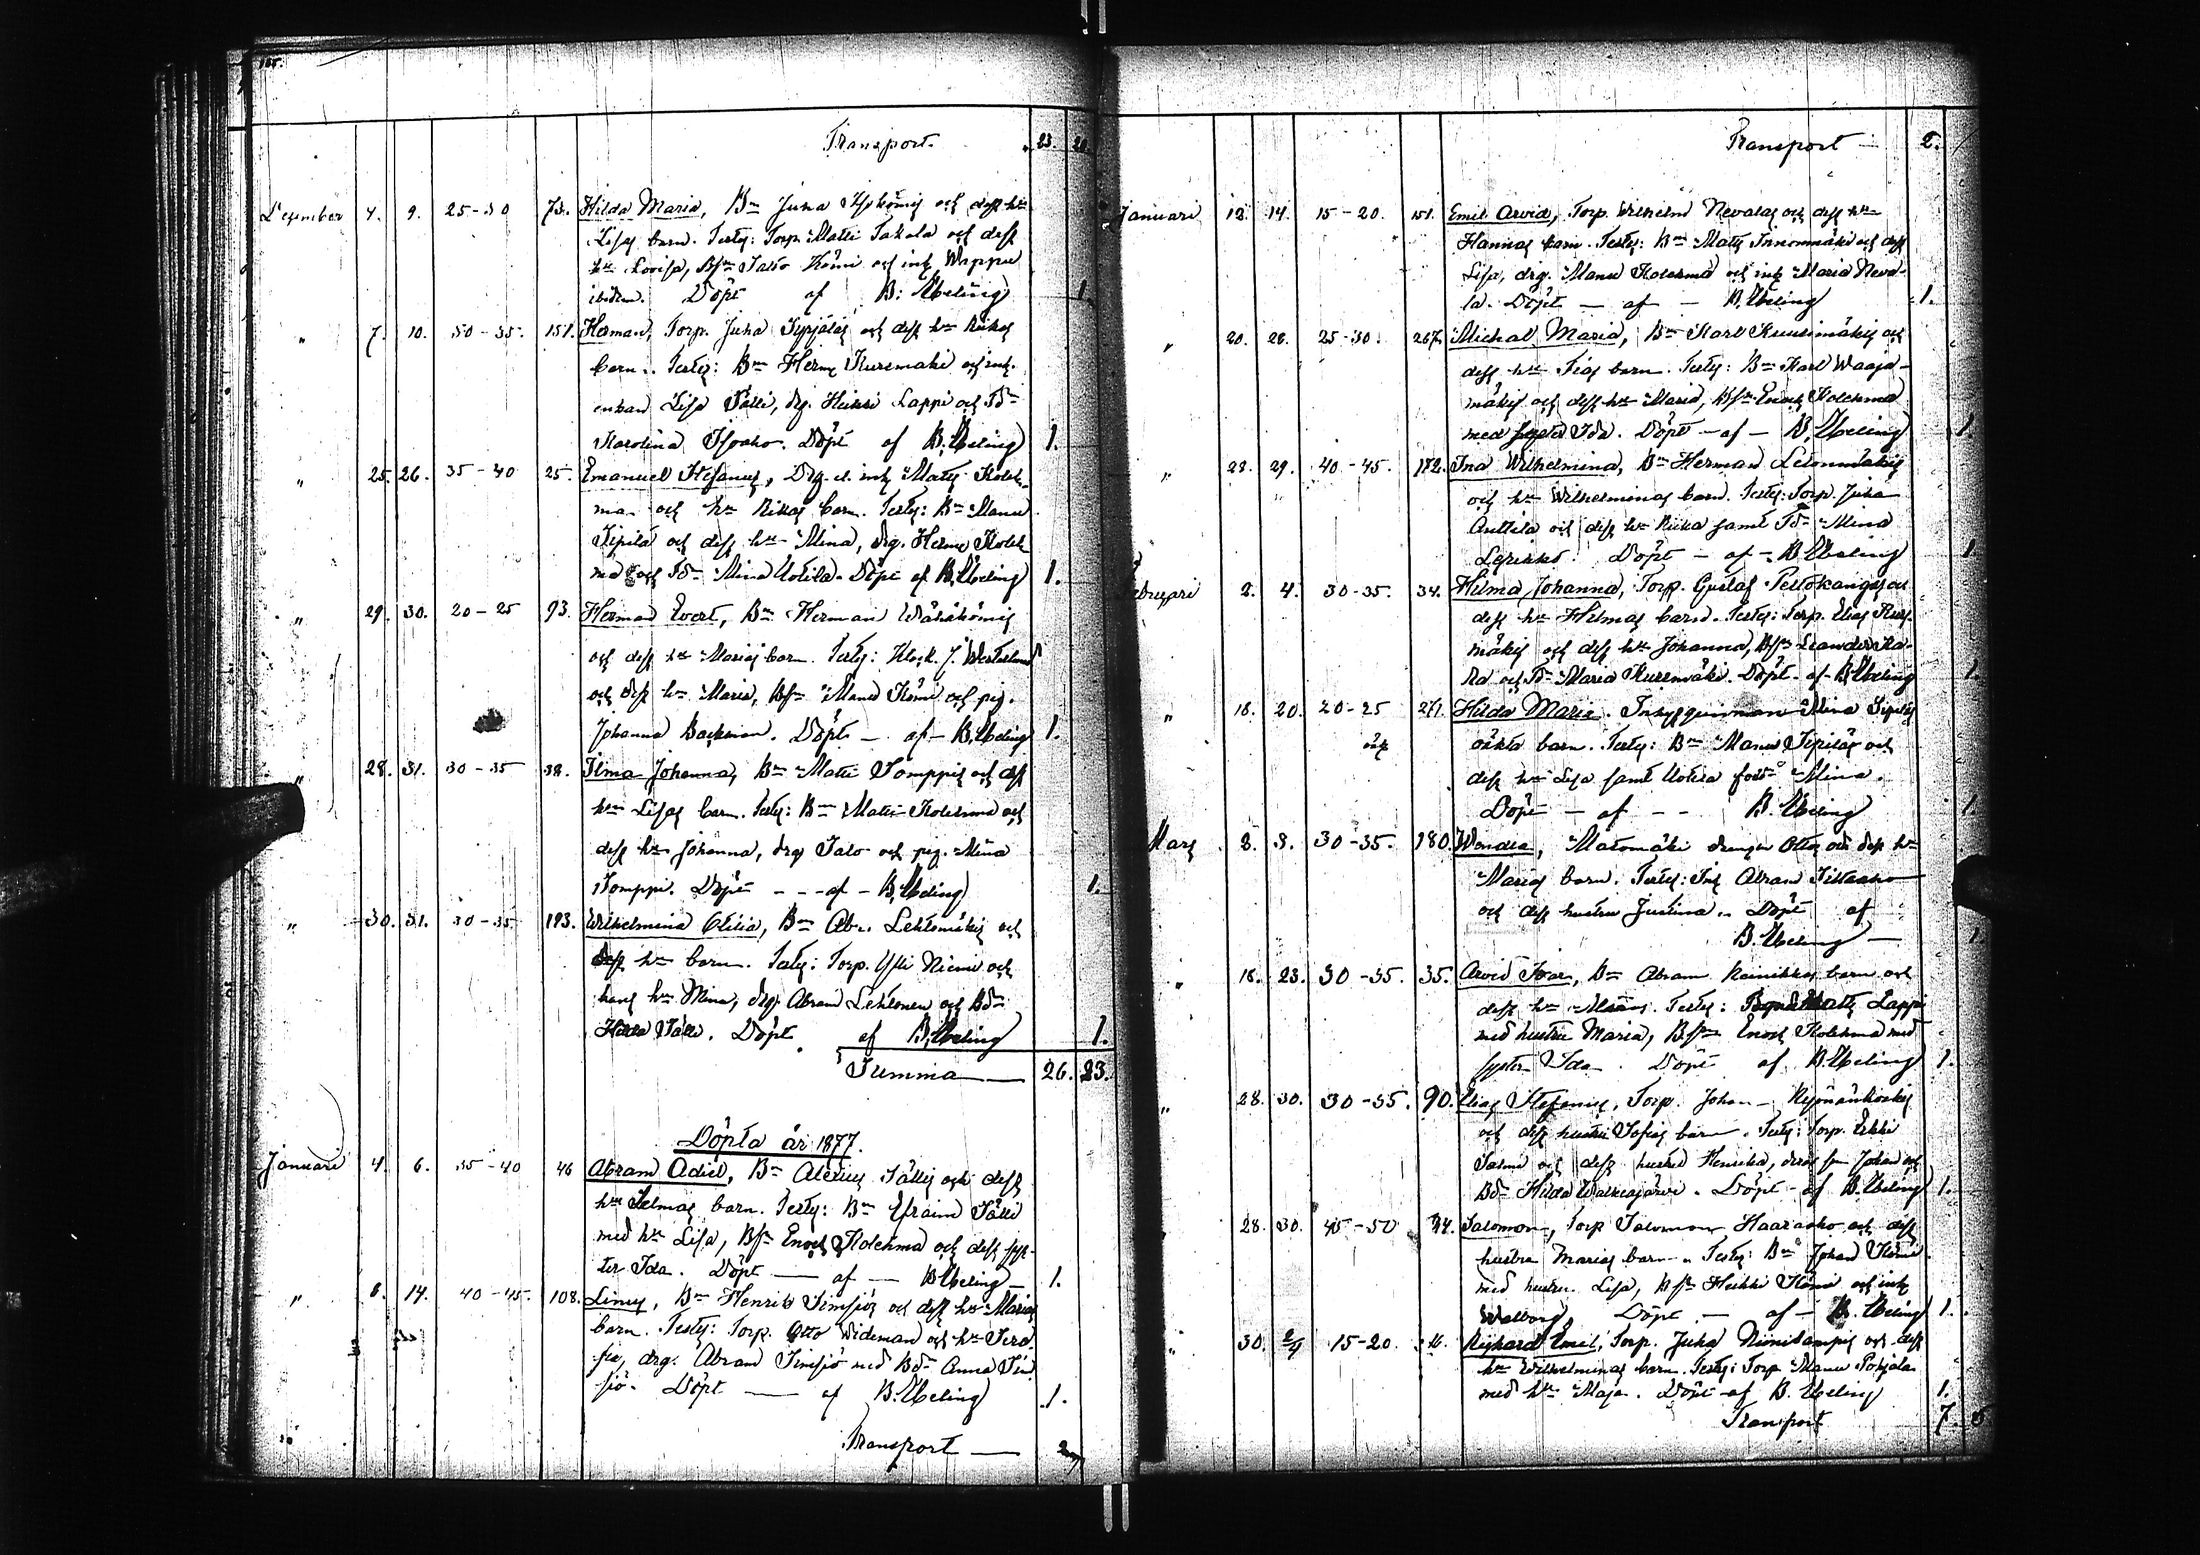 Transport. 23. 21.
December 4. 9. 25-30 73. Hilda Maria, Bn Juha och dess hu
Lisas barn. Testes: Torp. Matti Takala och dess
hu Lovisa, Bsn Jaako Kömi och ink Wappu
ibidem. Döpt af B: Ubeling 1
" 7. 10. 30-35. 151. Herman, Torp. Juha och dess hu Rikas
barn. Testes: Bn Herm Kuremäki och ink.
enkan Lisa Sälli, drg. Heikki Lappi och Td
Karolina Isoaho. Döpt af B. Ubeling 1.
" 25. 26. 35-40 25. Emanuel Stefanus, Drg. o. ink Matts Koleh-
ma och hu Rikas barn. Testes: Bn Manu
Sipilä och dess hu Mina, drg. Herm Koleh
ma och Td Mina Uotila. Döpt af B. Ubeling 1.
" 29. 30. 20-25 93. Herman Evert, Bn Herman Wähäkömis
och dess hu Marias barn. Testes: Klock. J. Westerlund
och dess hu Maria, Bsn Manu Kömi och pig.
Johanna Backman. Döpt - af - B. Ubeling 1.
" 28. 31. 30-35 38. Ilma Johanna, Bn Matti Somppis och dess
hu Lisas barn. Testes: Bn Matti Kolehma och
dess hu Johanna, drg Salo och pig. Mina
Somppi. Döpt - - - af - B. Ubeling 1.
" 30. 31. 30-35 193. Wilhelmina Otilia, Bn Abr. Lehtomäkis och
dess hu barn. Testes: Torp. Niemi och
hans hu Mina, drg. Abram Lehtonen och Bd
Hilda Sälli. Döpt af B. Ubeling 1.
Summa — 26. 23.
Döpta år 1877.
Januari 4. 6. 35-40 46 Abram Adiel, Bn Alexius Sällis och dess
hu Selmas barn. Testes: Bn Efraim Sälli
med hu Lisa, Bsn Enoch Kolehma och dess sys-
ter Ida. Döpt — af — B. Ubeling — 1.
" 6. 14. 40-45. 108. Linus, Bn Henrik Simsiös och dess hu Marias
barn. Testes: Torp. Otto Wideman och hu Sero-
fia, drg. Abram Simsiö med Bd Anna Sim
siö. Döpt — af B. Ubeling 1.
Transport — 2
Transport — 2.
Januari 12. 14. 15-20. 151. Emil Arvid, Torp. Wilhelm Nevalas och dess hu
Hannas barn. Testes: Bn Matts Innonmäki och dess
Lisa, drg. Manu Kolehma och ink Maria Neva-
la. Döpt — af — B. Ubeling 1.
" 20. 28. 25-30. 267. Michal Maria, Bn Karl Kuurimäkis och
dess hu Fias barn. Testes: Bn Karl Waaja-
mäkis och dess hu Maria, Bsn Enoch Kolehma
med syster Ida. Döpt - af - B. Ubeling 1.
" 28. 29. 40-45. 182. Ina Wilhelmina, Bn Herman
och hu Wilhelminas barn. Testes: Torp. Juha
Anttila och dess hu Riika samt Td Mina
Döpt - af - B. Ubeling 1.
Februari 2. 4. 30-35. 34. Hilma Johanna, Torp. Gustaf Peltokangas och
dess hu Hilmas barn. Testes: Torp. Elias Kure-
mäkis och dess hu Johanna, Bsn Leander Ra-
ka och Td Maria Kuremäki. Döpt - af - B. Ubeling 1.
" 18. 20. 20-25 271. Hilda Maria. Inhysesqvinnan Mina Sipiläs
oäk oäkta barn. Testes: Bn Manu Sipiläs och
dess hu Lisa samt Uotila Mina.
Döpt - af - - B. Ubeling 1.
Mars 2. 3. 30-35. 180. Wendla, Matomäki drengen Ottos och dess hu
Marias barn. Testes: Ink Abram
och dess hustru Justina. Döpt af
B. Ubeling — 1.
" 18. 23. 30-35. 35. Arvid Ivar, Bn Abram barn och
dess hu Testes: Matts Lappi
med hustru Maria, Bsn Enoch Kolehma med
syster Ida. Döpt af B. Ubeling 1.
" 28. 30. 30-35. 90. Elias Stefanus, Torp. Johan
och dess hustru Sofias barn. Testes: Torp. Erkki
Salmi och dess hustru Henrika, deras sn Johan och
Bd Hilda Walkeajärvi. Döpt - af B. Ubeling 1.
28. 30. 45-50 Salomon, Torp Salomon Haarasko och dess
hustru Marias barn. Testes: Bn Johan Kömi
med hustru Lisa, Bsn Heikki Kömi och ink
Walborg. Döpt — af — B. Ubeling 1.
" 30. 2/4 15-20. Rikhard Emil, Torp. Juha Niinikampis och dess
hu Wilhelminas barn. Testes: Torp Manu Pohjala
med hu Maja. Döpt - af B. Ubeling 1.
Transport 7. 5